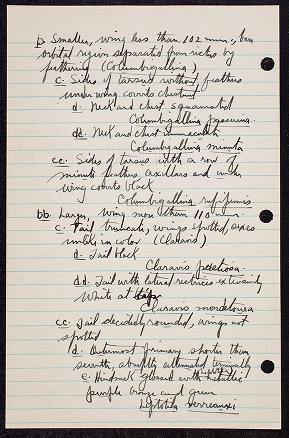 b. Smaller, wing less than 102 mm., bare
orbital region separated from rictus by
feathering (Columbigallina)
c. Sides of tarsus without feathers
under wing coverts chestnut
d. Neck and chest squamated
Columbigallina passerina
dd. Neck and chest immaculate
Columbigallina minuta
cc. Sides of tarsus with a row of
minute feathers axillars and under
wing coverts black
Columbigallina rufipennis
bb. Larger, wing more than 110
c. Tail truncate, wings spotted, sexes
unlike in color (Claravis)
d. Tail black
Claravis pretiosa
dd. Tail with lateral rectrices extensively
white at tips
Claravis mondetoura
cc. Tail decidedly rounded, wings not
spotted
d. Outermost primary shorter than
seventh, abruptly attenuated terminally
e. Hindneck glossed with metallic
purple bronze and green
Leptotila verreauxi